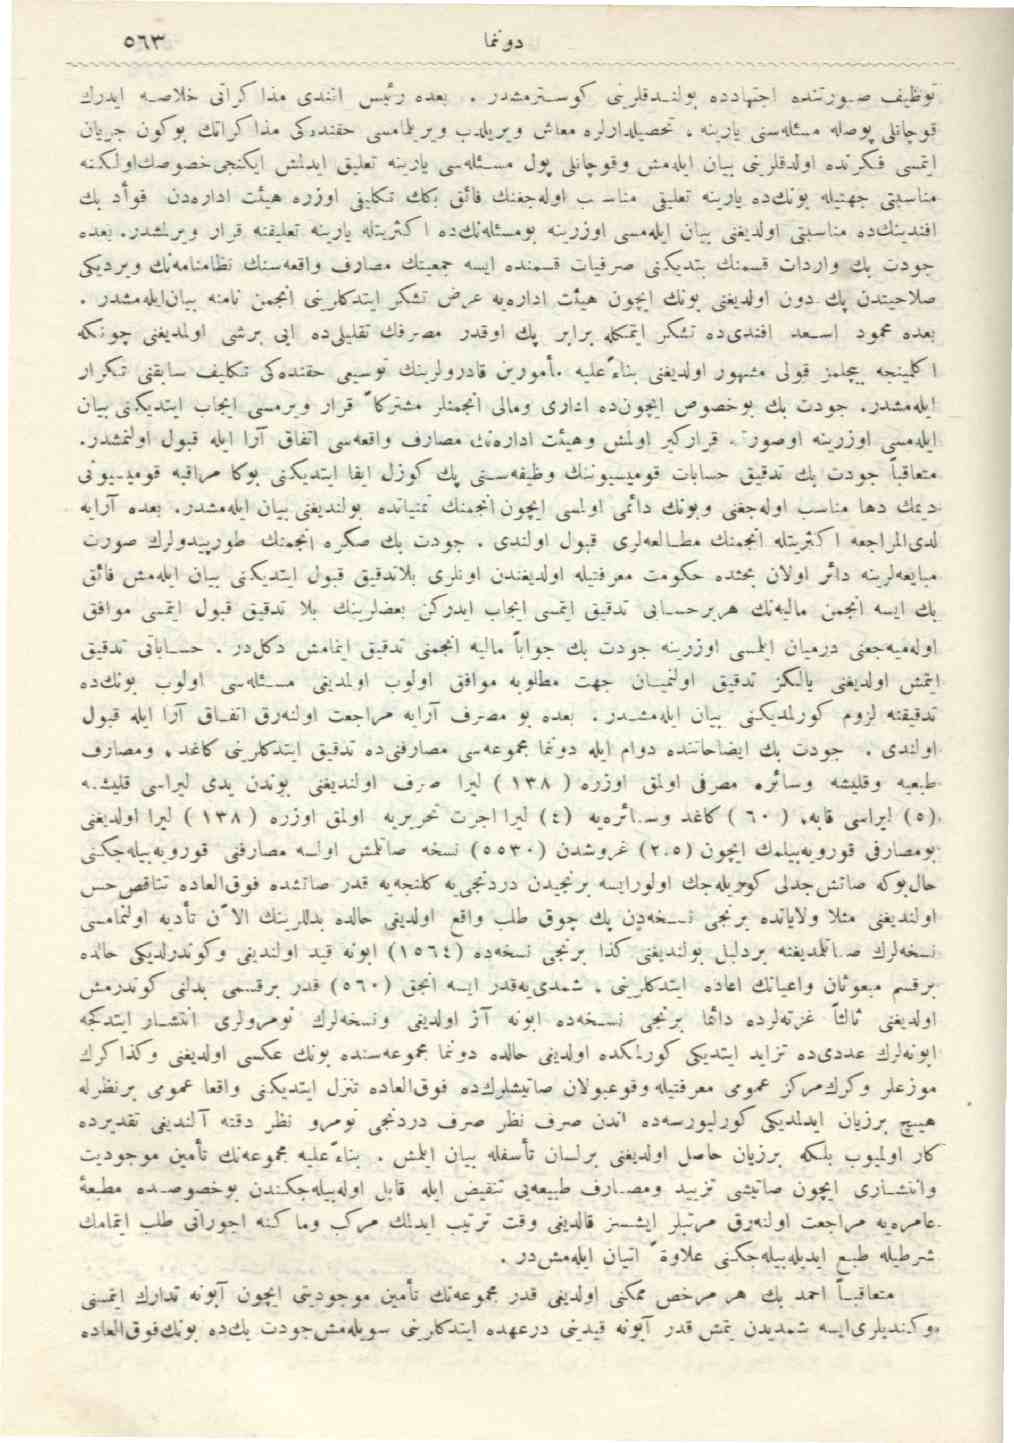 دونما
٥٦٣
توظیف صورتنده اجتهادده بولندقلرینی كوسترمشدر . بعده رئیس افندی مذاكراتی خلاصه ایدرك
قوچانلی پوصله مسئله‌سنی یارینه ، تحصیلدارلره معاش ویریلدب ویریلمامسی حقنده‌كی مذاكراتك بوكون جریان
ایتمسی فكرنده اولدقلرینی بیان ایله‌مش وقوچانلی پول مسئله‌سی یارینه تعلیق ایدلمش ایكنجی خصوصك اولكنه
مناسبتی جهتیله بونك‌ده یارینه تعلیقی مناسب اوله‌جغنك فائق بكك تكلیفی اوزره هیئت اداره‌دن فوأد بك
افندینك‌ده مناسبتی اولدیغنی بیان ایله‌مسی اوزرینه بومسئله‌نك‌ده اكثریتله یارینه تعلیقنه قرار ویرلمشدر. بعده
جودت بك واردات قسمنك بتدیكنی صرفیات قسمنده ایسه جمعیتك مصارف واقعه‌سنك نظامنامه‌نك ویردیكی
صلاحیتدن پك دون اولدیغنی بونك ایچون هیئت اداره‌یه عرض تشكر ایتدكلرینی انجمن نامنه بیان‌ایله‌مشدر .
بعده محمود اسعد افندی‌ده تشكر ایتمكله برابر پك اوقدر مصرفك تقلیلی‌ده ایی برشی اولمدیغنی چونكه
اكلمینجه بیچلمز قولی مشهور اولدیغنی بناءً علیه مأمورین قادرولرینك توسیعی حقنده‌كی تكلیف سابقنی تكرار
ایله‌مشدر. جودت بك بوخصوص ایچون‌ده اداری ومالی انجمنلر مشتركاً قرار ویرمسی ایجاب ایتدیكنی بیان
ایله‌مسی اوزرینه اوصورتله قراركیر اولمش وهیئت اداره‌نك مصارف واقعه‌سی اتفاق آرا ایله قبول اولنمشدر.
متعاقباً جودت بك تدقیق حسابات قومیسیوننك وظیفه‌سنی پك كوزل ایفا ایتدیكنی بوكا مراقبه قومیسیونی
دیمك دها مناسب اوله‌جغنی وبونك دائمی اولمسی ایچون انجمنك تمنیاتده بولندیغنی بیان ایله‌مشدر. بعده آرایه
لدی‌المراجعه اكثریتله انجمنك مطالعه‌لری قبول اولندی . جودت بك صكره انجمنك طورپیدولرك صورت
مبایعه‌لرینه دائر اولان بحثده حكومت معرفتیله اولدیغندن اونلری بلاتدقیق قبول ایتدیكنی بیان ایله‌مش فائق
بك ایسه انجمن مالیه‌نك هربرحسابی تدقیق ایتمسی ایجاب ایدركن بعضلرینك بلا تدقیق قبول ایتمسی موافق
اوله‌میه‌جغنی درمیان ایلمسی اوزرینه جودت بك جواباً مالیه انجمنی تدقیق ایتمامش دكل‌در . حساباتی تدقیق
ایتمش اولدیغنی یالكز تدقیق اولنمیان جهت مطلوبه موافق اولوب اولمدیغی مسئله‌سی اولوب بونك‌ده
تدقیقنه لزوم كورلمدیكنی بیان ایله‌مشدر. بعده بو مصرف آرایه مراجعت اولنه‌رق اتفاق آرا ایله قبول
اولندی . جودت بك ایضاحاتنده دوام ایله دونما مجموعه‌سی مصارفنی‌ده تدقیق ایتدكلرینی كاغد ، ومصارف
طبعیه وقلیشه وسائره مصرفی اولمق اوزره ( ١٣٨ ) لیرا صرف اولندیغنی بوندن یدی لیراسی قلیشه
(٥) لیراسی قابه، ( ٦٠ ) كاغد وسائره‌یه (٤) لیرا اجرت تحریریه اولمق اوزره ( ١٣٨ ) لیرا اولدیغنی
بومصارفی قورویه‌بیلمك ایچون (٢.٥) غروشدن (٥٥٣٠) نسخه صاتلمش اولسه مصارفنی قورویه‌بیله‌جكنی
حال‌بوكه صاتش‌جدلی كوریله‌جك اولورایسه برنجیدن دردنجی‌یه كلنجه‌یه قدر صاتشده فوق‌العاده تناقص‌حس
اولندیغنی مثلا ولایاتده برنجی نسخه‌دن پك چوق طلب واقع اولدیغی حالده بدللرینك الآن تأدیه اولنمامسی
نسخه‌لرك صاتلمدیغنه بردلیل بولندیغنی كذا برنجی نسخه‌ده (١٥٦٤) ابونه قید اولندیغی وكوندرلدیكی حالده
برقسم مبعوثان واعیانك اعاده ایتدكلرینی . شمدی‌یه‌قدر ایسه انجق (٥٦٠) قدر برقسمی بدلنی كوندرمش
اولدیغنی ثالثاً غزته‌لرده دائما برنجی نسخه‌ده ابونه آز اولدیغی ونسخه‌لرك نومرولری انتشار ایتدكجه
ابونه‌لرك عددی‌ده تزاید ایتدیكی كورلمكده اولدیغی حالده دونما مجموعه‌سنده بونك عكسی اولدیغنی وكذا كرك
موزعلر وكرك مركز عمومی معرفتیله وقوعبولان صاتیشلرك‌ده فوق‌العاده تنزل ایتدیكنی واقعا عمومی برنظرله
هیچ برزیان ایدلمدیكی كورلیورسه‌ده اندن صرف نظر صرف دردنجی نومرو نظر دقته آلندیغی تقدیرده
كار اولمیوب بلكه برزیان حاصل اولدیغنی برلسان تأسفله بیان ایلمش . بناءً علیه مجموعه‌نك تأمین موجودیت
وانتشاری ایچون صاتیشی تزیید ومصارف طبیعه‌یی تنقیص ایله قابل اوله‌بیله‌جكندن بوخصوصده مطبعهٔ
عامره‌یه مراجعت اولنه‌رق مرتبلر ایشسز قالدیغی وقت ترتیب ایدلمك مركب وماكنه اجوراتی طلب ایتمامك
شرطیله طبع ایدیله‌بیله‌جكنی علاوةً اتیان ایله‌مش‌در .
متعاقباً احمد بك هر مرخص ممكنی اولدیغی قدر مجموعه‌نك تأمین موجودیتی ایچون آبونه تدارك ایتمسنی
وكندیلری‌ایسه شمدیدن یتمش قدر آبونه قیدینی درعهده ایتدكلرینی سویله‌مش‌جودت بك‌ده بونك‌فوق‌العاده